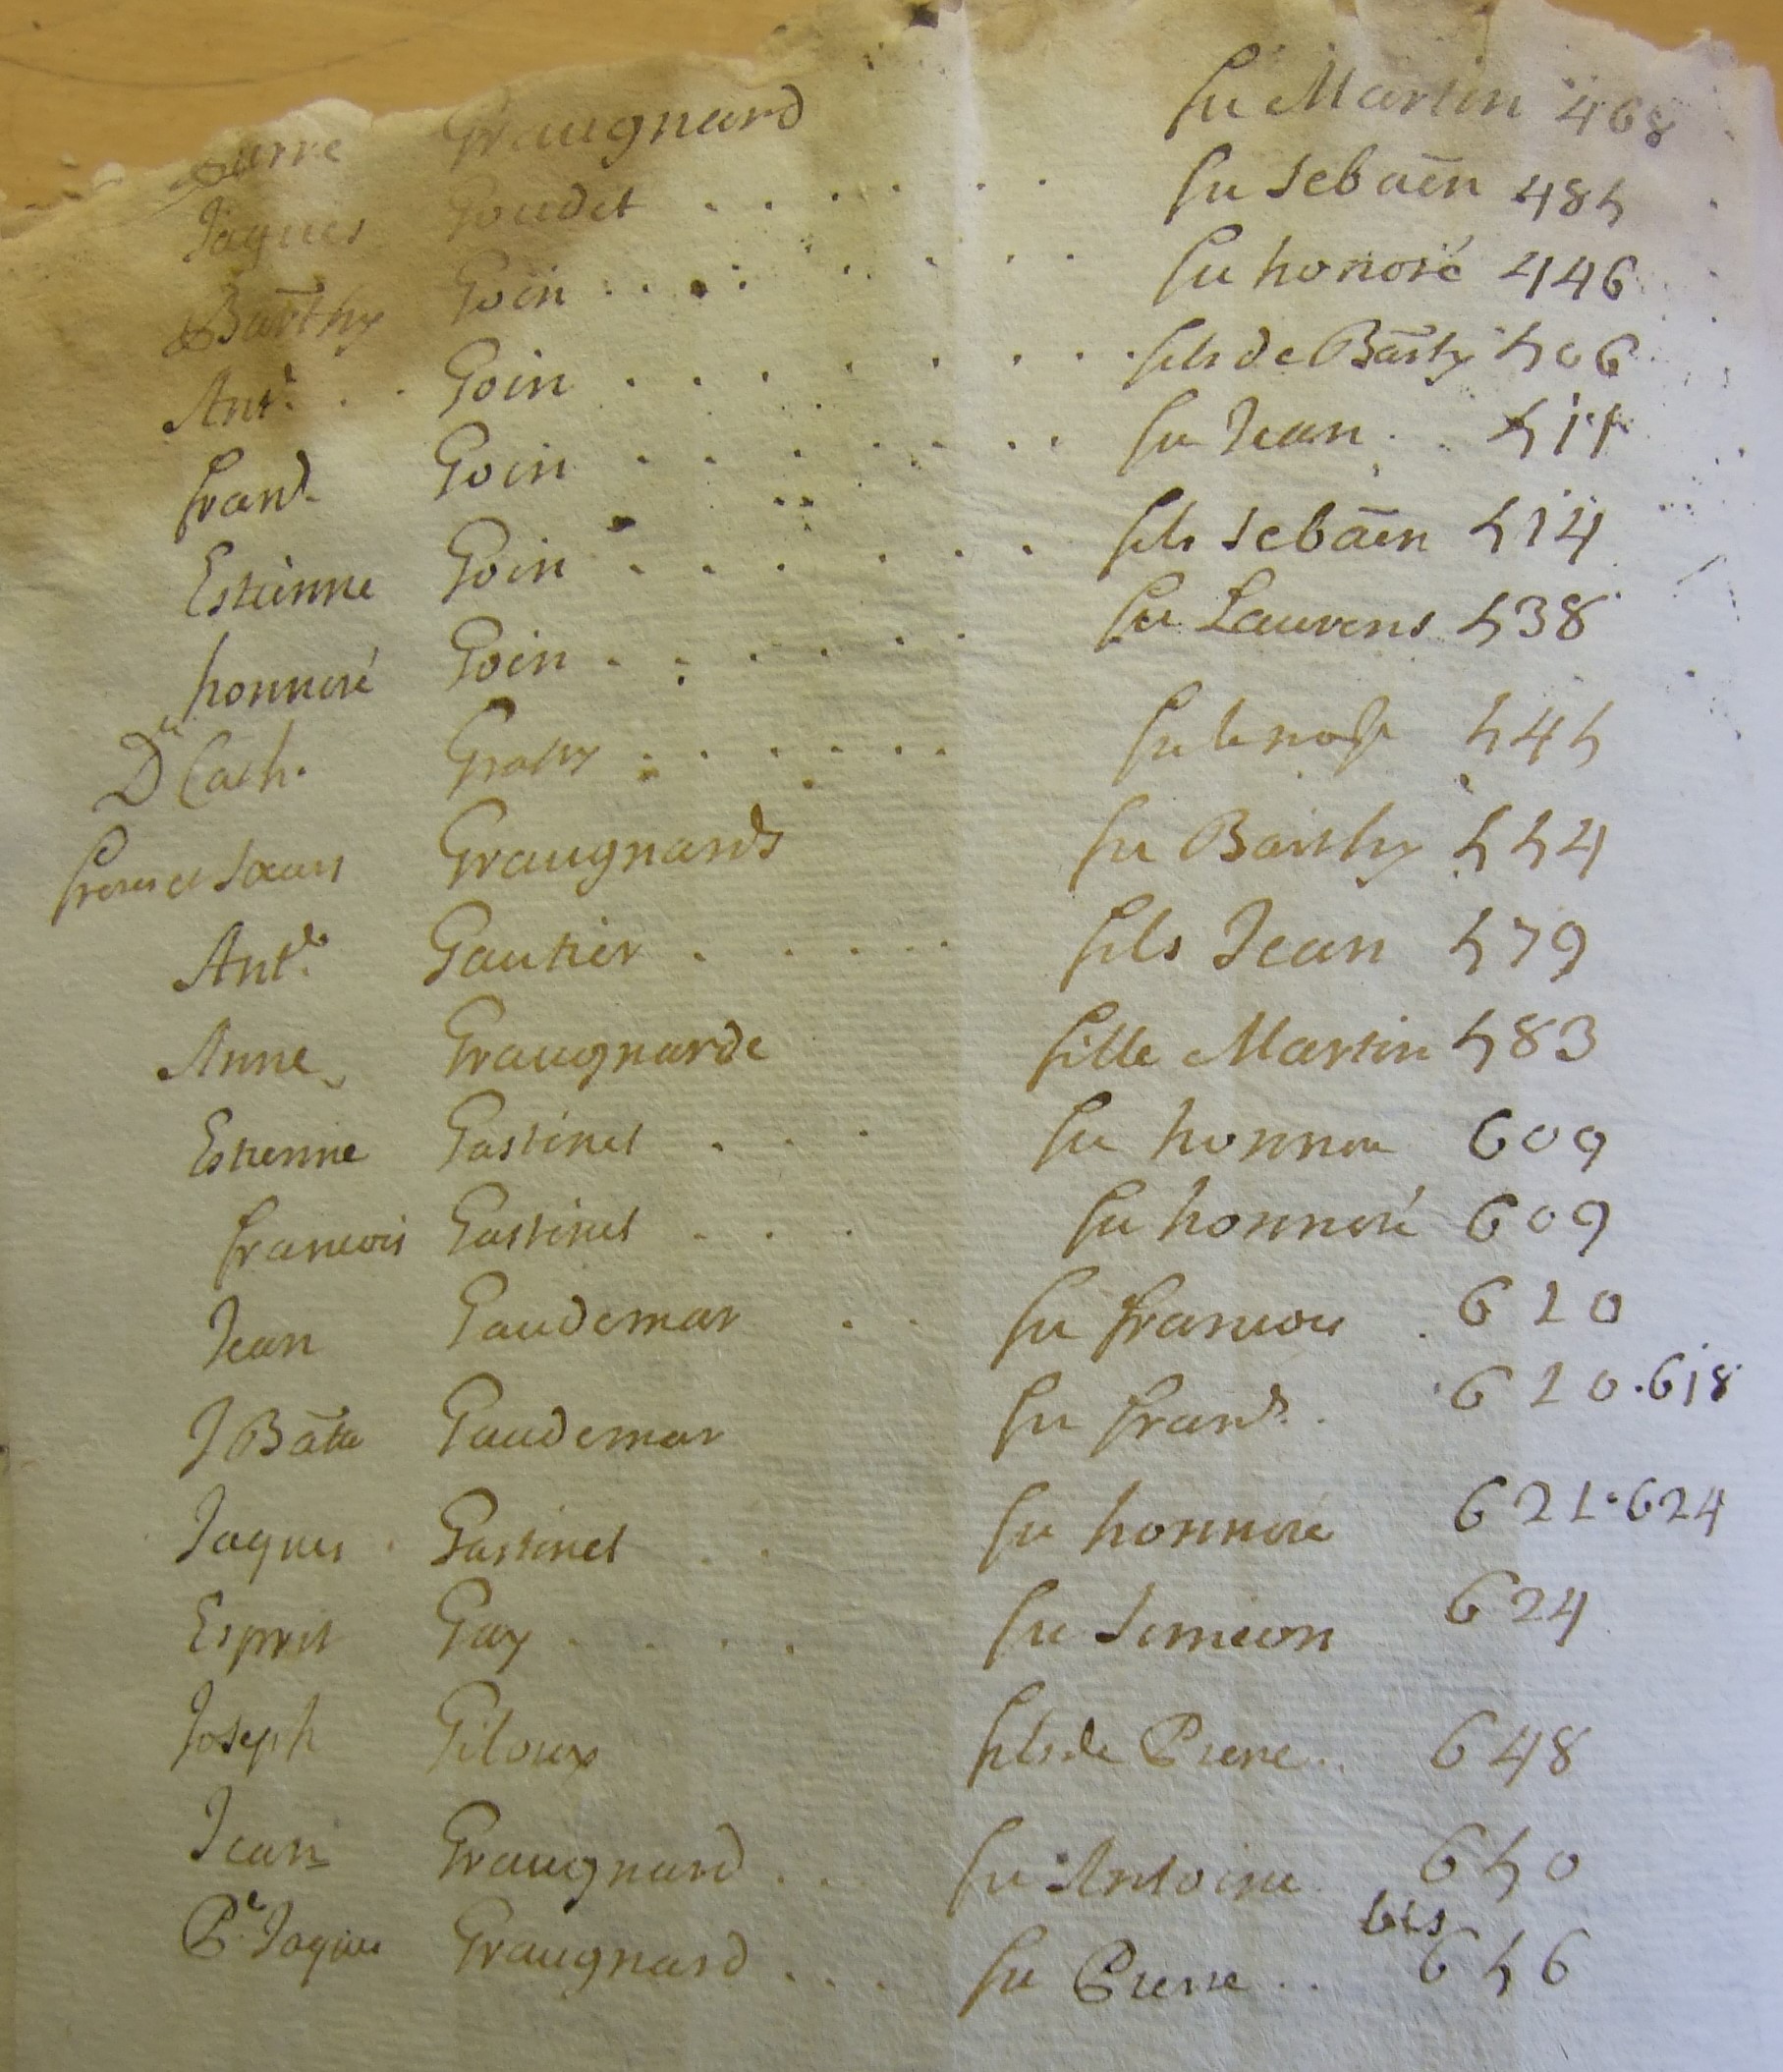 Pierre Graugnard fu Martin 468
Jaques Goudet . . . . . fu Sebaēn 485
Barthy Goin . . . . . . . fu honoré 446
Antᵉ . . Goin . . . . . . . fils de Barthy 506
franˢ Goin . . . . . . . fu Jean . . 511
Estienne Goin . . . . . . fils Sebāen 514
honnoré Goin . . . . . . fu Laurens 538
Dˡˡᵉ Cath. Grassy . . . . . . fu 545
freres et soeurs Graugnards fu Barthy 554
Antᵉ Gautier . . . . fils Jean 579
Anne Graugnarde fille Martin 583
Estienne Gastinel . . . fu honnoré 609
francois Gastinel . . . fu honnoré 609
Jean Gaudemar . . fu francois . 610
J Bāte Gaudemar fu franˢ . 610 . 618
Jaques . Gastinel . . fu honnoré 621 . 624
Esprit Gay . . . . fu Simeon 624
Joseph Giloux fils de Pierre . . 648
Jean Graugnard . . . fu Antoine . 650
Pʳᵉ Jaques Graugnard . . . fu Pierre . . bis 656